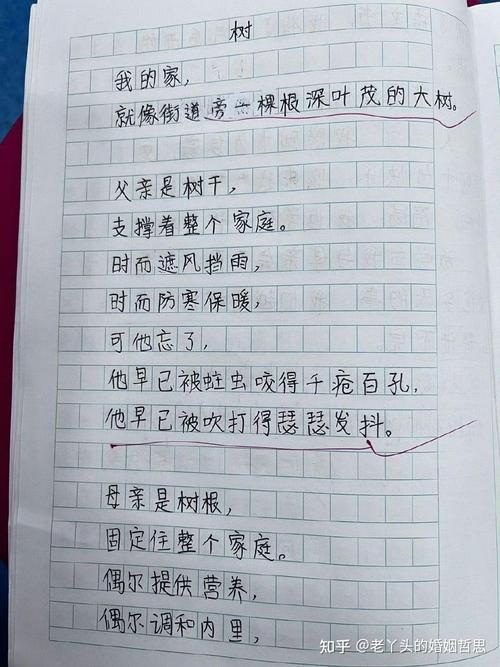 树
我的家，
就像街道旁一棵根深叶茂的大树。
父亲是树干，
支撑着整个家庭。
时而遮风挡雨，
时而防寒保暖，
可他忘了，
他早已被蛀虫咬得千疮百孔，
他早已被吹打得瑟瑟发抖。
母亲是树根，
固定住整个家庭。
偶尔提供营养，
偶尔调和内里，
知乎 @老丫头的婚姻哲思